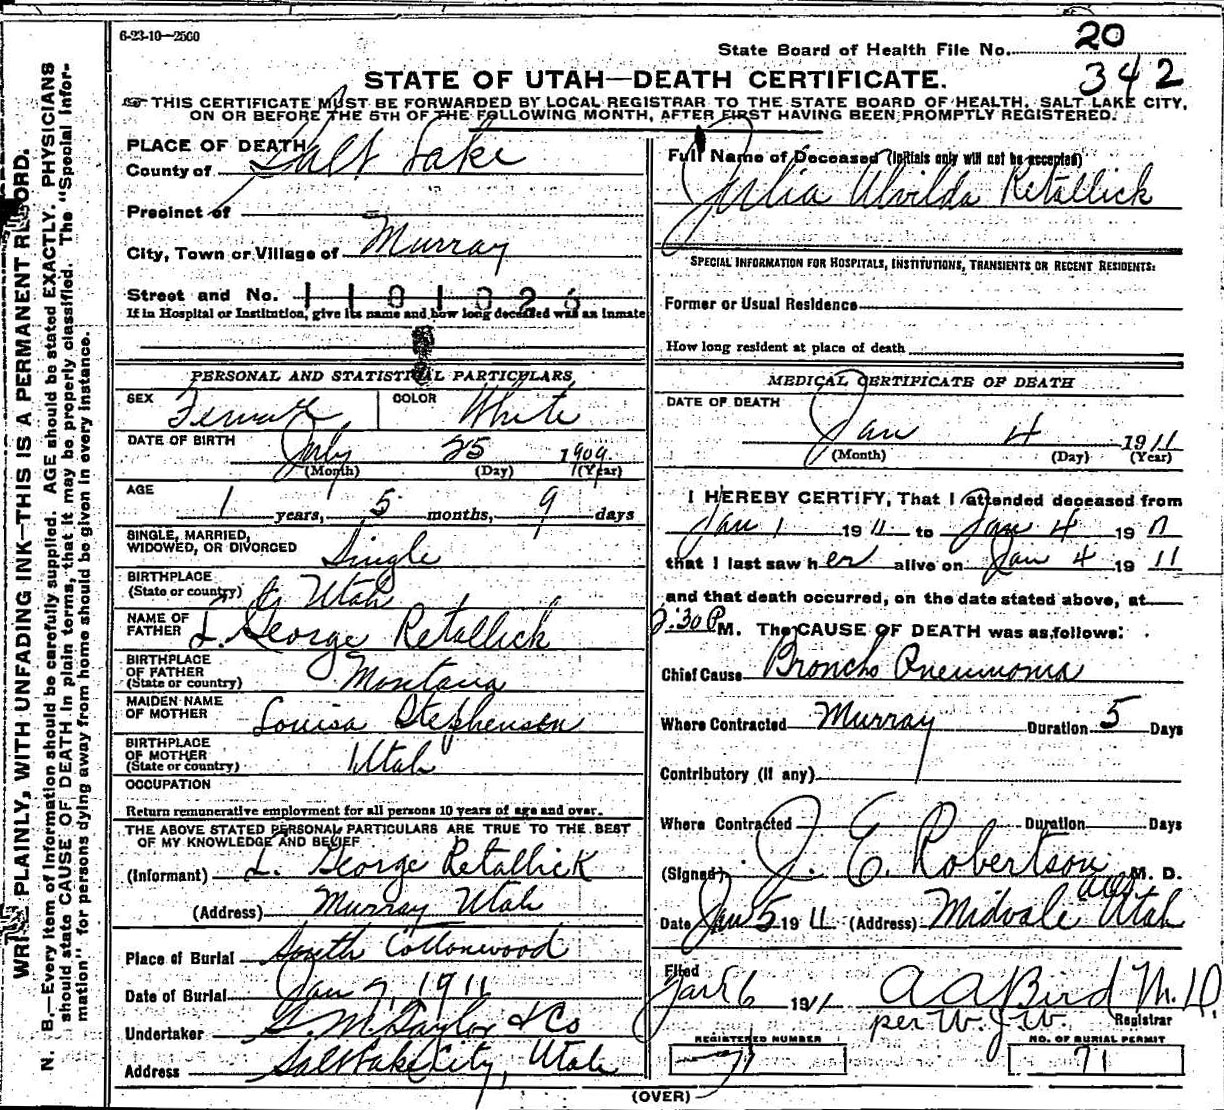 6-23-10—2500
State Board of Health File No. 20
342
STATE OF UTAH—DEATH CERTIFICATE.
THIS CERTIFICATE MUST BE FORWARDED BY LOCAL REGISTRAR TO THE STATE BOARD OF HEALTH, SALT LAKE CITY,
ON OR BEFORE THE 5TH OF THE FOLLOWING MONTH, AFTER FIRST HAVING BEEN PROMPTLY REGISTERED.
PLACE OF DEATH
County of Salt Lake
Precinct of
City, Town or Village of Murray
Street and No. 1101026
If in Hospital or Institution, give its name and how long deceased was an inmate
PERSONAL AND STATISTICAL PARTICULARS
SEX Female COLOR White
DATE OF BIRTH
July 25 1909
(Month) (Day) (Year)
AGE
1 years, 5 months, 9 days
SINGLE, MARRIED,
WIDOWED, OR DIVORCED Single
BIRTHPLACE
(State or country) Utah
NAME OF
FATHER L. George Retallick
BIRTHPLACE
OF FATHER
(State or country) Montana
MAIDEN NAME
OF MOTHER Louisa Stephenson
BIRTHPLACE
OF MOTHER
(State or country) Utah
OCCUPATION
Return remunerative employment for all persons 10 years of age and over.
THE ABOVE STATED PERSONAL PARTICULARS ARE TRUE TO THE BEST
OF MY KNOWLEDGE AND BELIEF
(Informant) L. George Retallick
(Address) Murray Utah
Place of Burial South Cottonwood
Date of Burial Jan 7, 1911
Undertaker S. M. Taylor & Co
Address Salt Lake City, Utah
Full Name of Deceased (Initials only will not be accepted)
Julia Alvilda Retallick
SPECIAL INFORMATION FOR HOSPITALS, INSTITUTIONS, TRANSIENTS OR RECENT RESIDENTS:
Former or Usual Residence
How long resident at place of death
MEDICAL CERTIFICATE OF DEATH
DATE OF DEATH
Jan 4 1911
(Month) (Day) (Year)
I HEREBY CERTIFY, That I attended deceased from
Jan 1 1911 to Jan 4 1911
that I last saw her alive on Jan 4 1911
and that death occurred, on the date stated above, at
2:30 P M. The CAUSE OF DEATH was as follows:
Chief Cause Broncho Pneumonia
Where Contracted Murray Duration 5 Days
Contributory (if any)
Where Contracted Duration Days
(Signed) J. E. Robertson M. D.
Date Jan 5 1911 (Address) Midvale Utah
Filed
Jan 6 1911 A A Bird M.D.
per W. J. W. Registrar
REGISTERED NUMBER NO. OF BURIAL PERMIT
71
(OVER)
WRITE PLAINLY, WITH UNFADING INK—THIS IS A PERMANENT RECORD.
N. B.—Every item of information should be carefully supplied. AGE should be stated EXACTLY. PHYSICIANS
should state CAUSE OF DEATH in plain terms, that it may be properly classified. The "Special Infor-
mation" for persons dying away from home should be given in every instance.